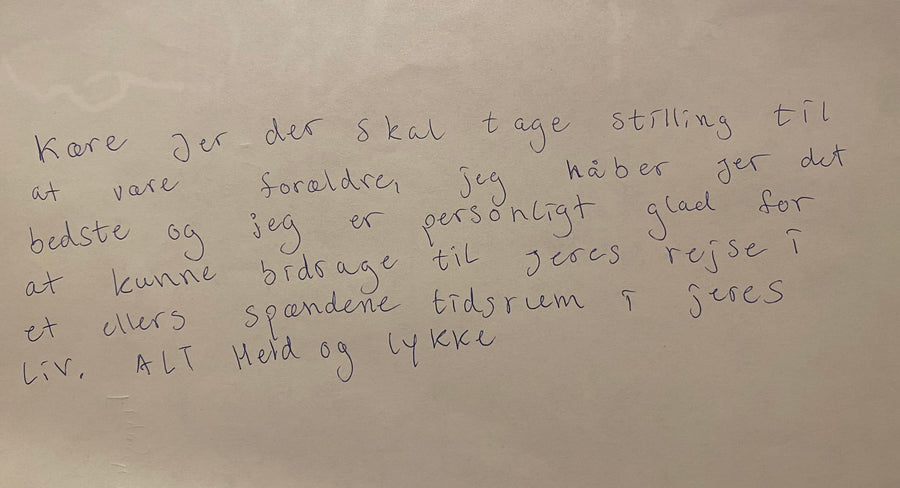 Kære Jer der skal tage stilling til
at være forældre, jeg håber jer det
bedste og jeg er personligt glad for
at kunne bidrage til jeres rejse i
et ellers spændene tidsrum i jeres
liv. ALT Held og lykke